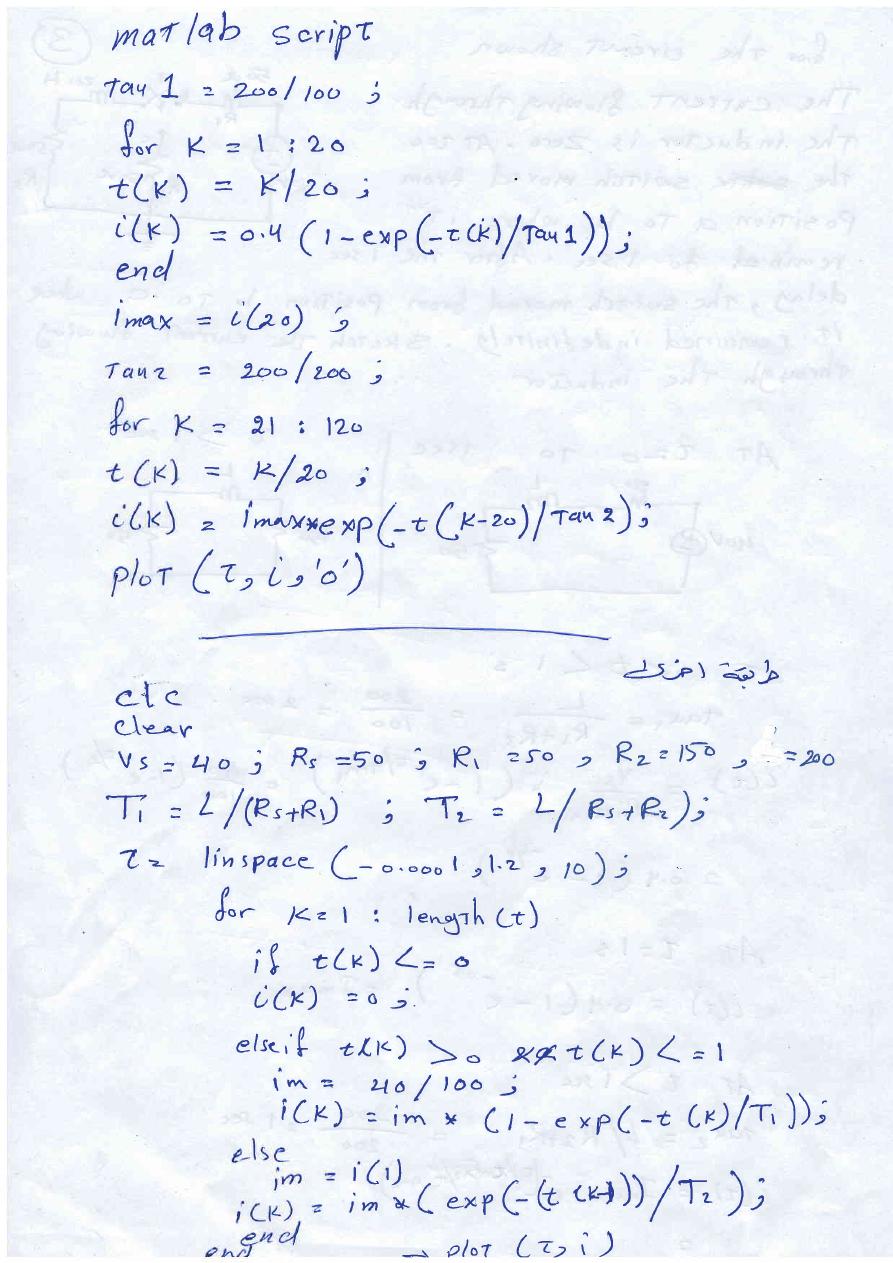 matlab script
Tau 1 = 200/100 ;
for K = 1 : 20
t(K) = K/20 ;
i(K) = 0.4 (1-exp(-t(k)/Tau1));
end
imax = i(20) ;
Tau2 = 200/200 ;
for K = 21 : 120
t(K) = K/20 ;
i(K) = imax**exp(-t(K-20)/Tau2);
plot (t, i, 'o')
طريقة اخرى
clc
clear
Vs = 40 ; Rs =50 ; R1 =50 , R2=150 , =200
T1 = L/(Rs+R1) ; T2 = L/Rs+R2);
t= linspace (-0.0001 ,1.2 , 10);
for K=1 : length(t)
if t(K) <= 0
i(K) =0 ;
elseif t(K) >0 && t(K) <=1
im = 40/100 ;
i(K) = im * (1- exp(-t (K)/T1));
else
im = i(1)
i(K) = im *( exp(-(t (K-1))/T2);
end
end → plot (t, i)